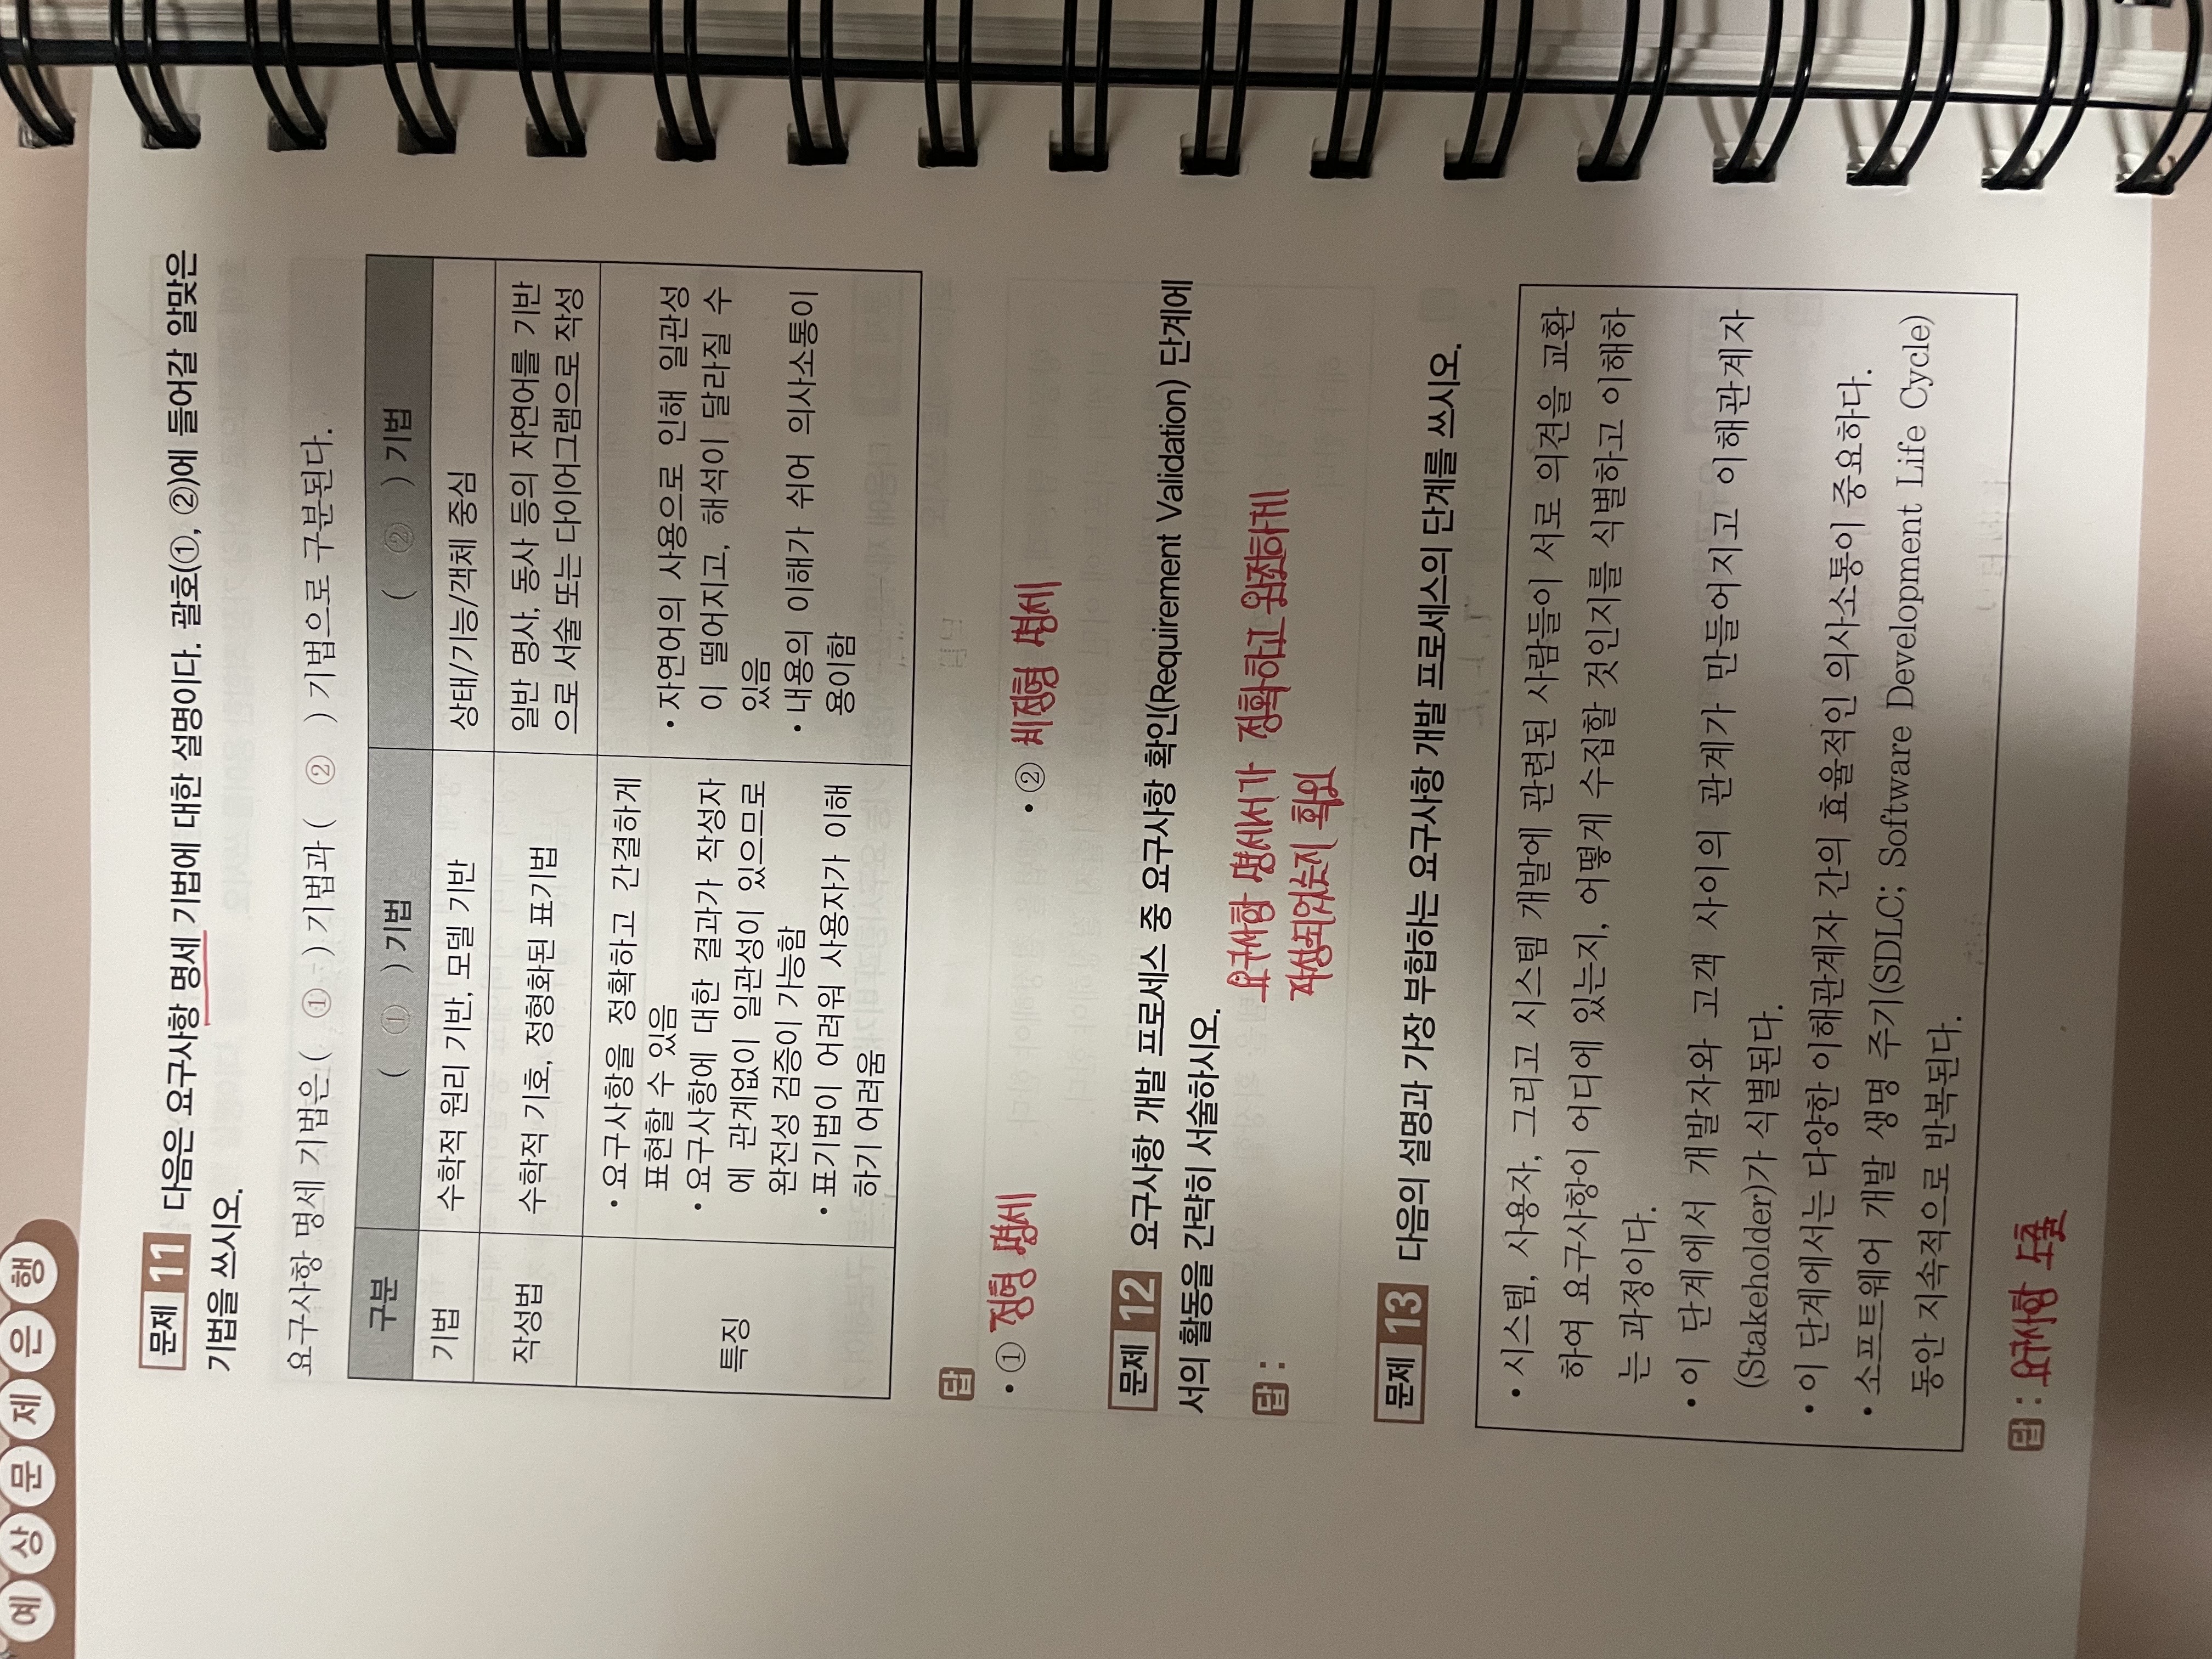 예상문제은행
문제 11 다음은 요구사항 명세 기법에 대한 설명이다. 괄호(①, ②)에 들어갈 알맞은
기법을 쓰시오.
요구사항 명세 기법은 ( ① ) 기법과 ( ② ) 기법으로 구분된다.
구분 ( ① ) 기법 ( ② ) 기법
기법 수학적 원리 기반, 모델 기반 상태/기능/객체 중심
작성법 수학적 기호, 정형화된 표기법
일반 명사, 동사 등의 자연어를 기반
으로 서술 또는 다이어그램으로 작성
특징
• 요구사항을 정확하고 간결하게
표현할 수 있음
• 요구사항에 대한 결과가 작성자
에 관계없이 일관성이 있으므로
완전성 검증이 가능함
• 표기법이 어려워 사용자가 이해
하기 어려움
• 자연어의 사용으로 인해 일관성
이 떨어지고, 해석이 달라질 수
있음
• 내용의 이해가 쉬어 의사소통이
용이함
답
• ① 정형 명세 • ② 비정형 명세
문제 12 요구사항 개발 프로세스 중 요구사항 확인(Requirement Validation) 단계에
서의 활동을 간략히 서술하시오.
답 :
요구사항 명세서가 정확하고 완전하게
작성되었는지 확인
문제 13 다음의 설명과 가장 부합하는 요구사항 개발 프로세스의 단계를 쓰시오.
• 시스템, 사용자, 그리고 시스템 개발에 관련된 사람들이 서로 의견을 교환
하여 요구사항이 어디에 있는지, 어떻게 수집할 것인지를 식별하고 이해하
는 과정이다.
• 이 단계에서 개발자와 고객 사이의 관계가 만들어지고 이해관계자
(Stakeholder)가 식별된다.
• 이 단계에서는 다양한 이해관계자 간의 효율적인 의사소통이 중요하다.
• 소프트웨어 개발 생명 주기(SDLC; Software Development Life Cycle)
동안 지속적으로 반복된다.
답 : 요구사항 도출